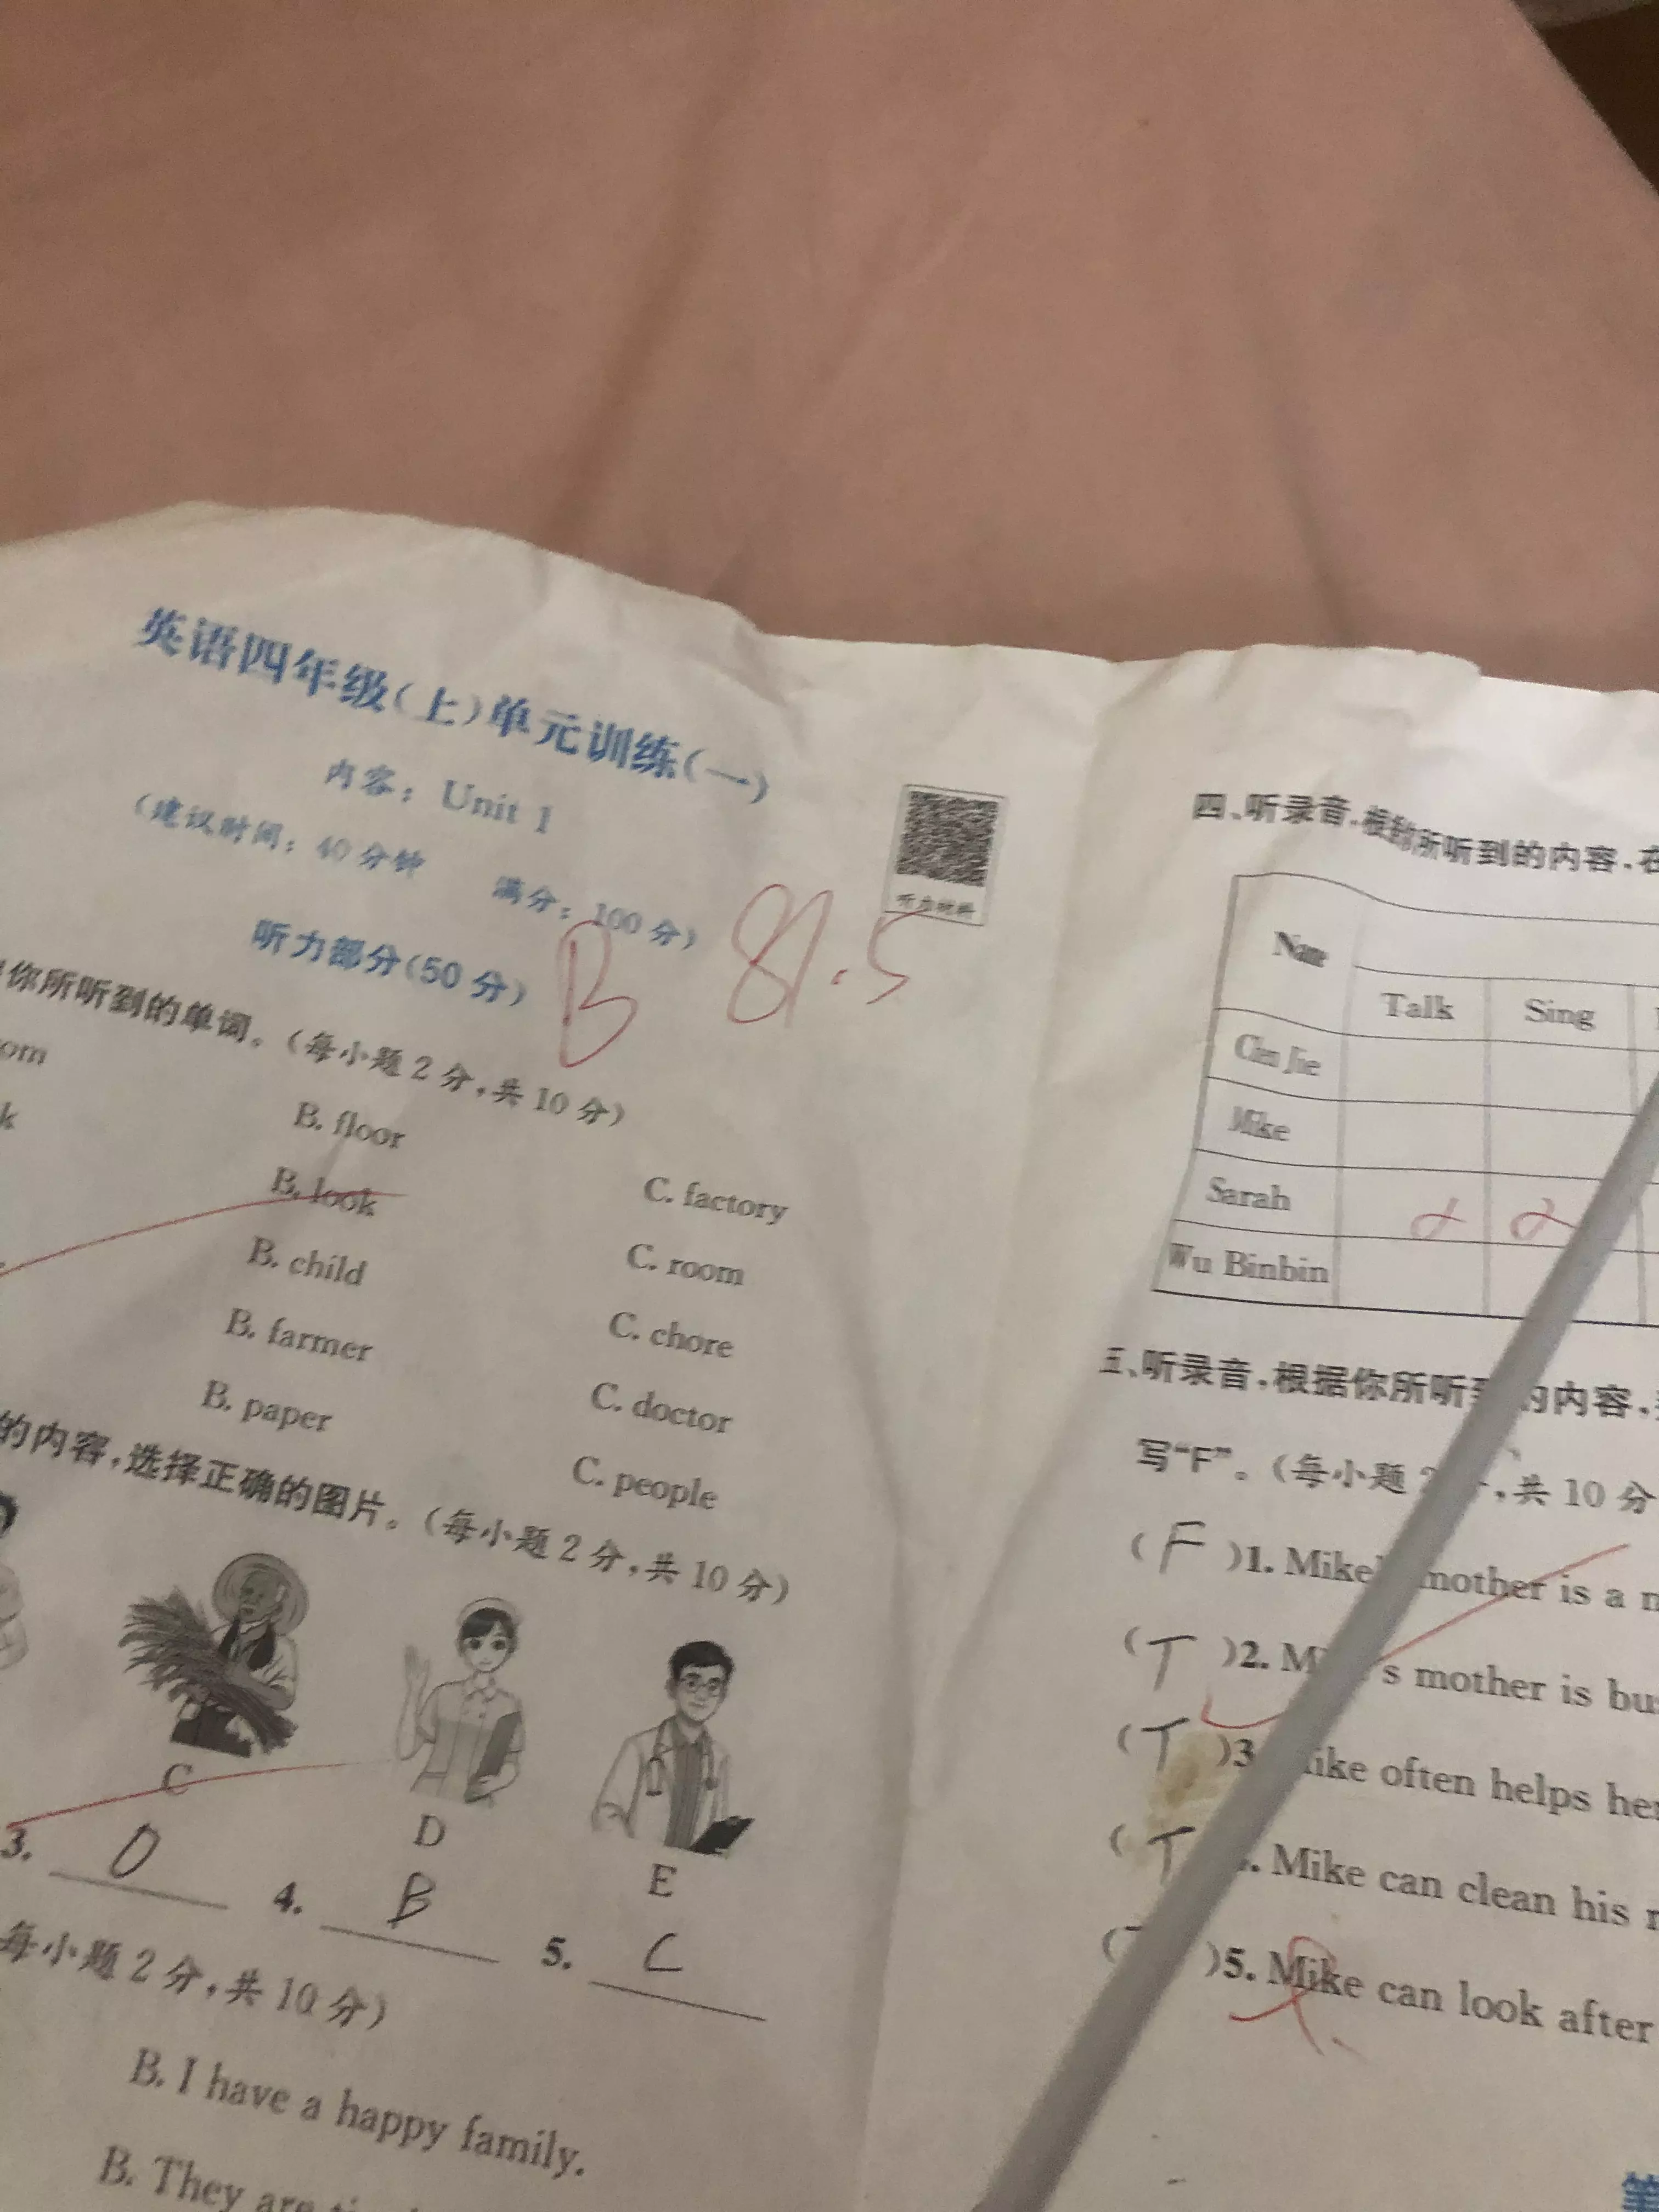 英语四年级(上)单元训练(一)
内容：Unit 1
(建议时间：40分钟 满分：100分)
听力材料
听力部分(50分)
B 81.5
你所听到的单词。(每小题2分,共10分)
om
B. floor
C. factory
k
B. look
C. room
B. child
C. chore
B. farmer
C. doctor
B. paper
C. people
的内容,选择正确的图片。(每小题2分,共10分)
C
D
E
3. D
4. B
5. C
每小题2分,共10分)
B. I have a happy family.
B. They are
四、听录音,根据所听到的内容,在
Name
Talk
Sing
Chen Jie
Mike
Sarah
Wu Binbin
五、听录音,根据你所听到的内容,
写“F”。(每小题2分,共10分
(F)1. Mike mother is a
(T)2. M s mother is bu
(T)3. ike often helps her
(T) . Mike can clean his r
(T)5. Mike can look after
笔